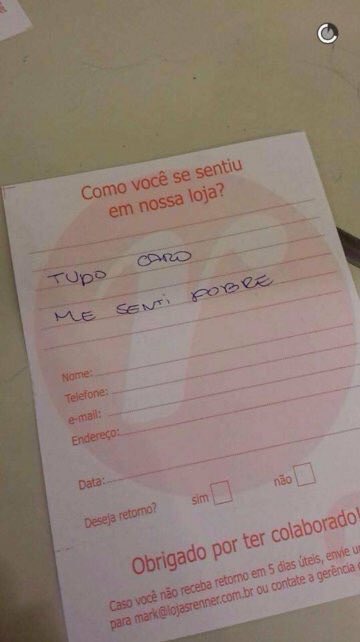 Como você se sentiu
em nossa loja?
TUDO CARO
ME SENTI POBRE
Nome:
Telefone:
e-mail:
Endereço:
Data:
Deseja retorno? sim não
Obrigado por ter colaborado!
Caso você não receba retorno em 5 dias úteis, envie
para mark@lojasrenner.com.br ou contate a gerência